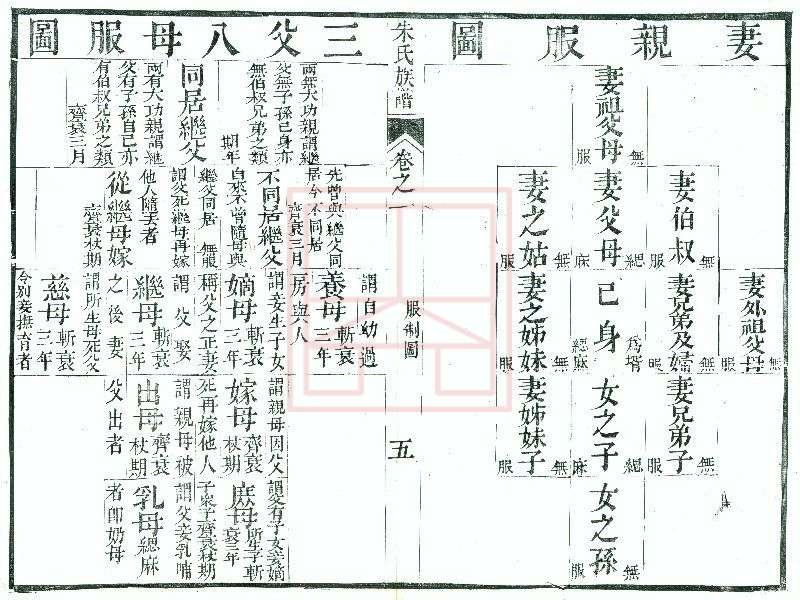 妻親服圖
妻祖父母 無服
妻外祖父母 無服
妻伯叔 無服
妻父母 緦麻
妻之姑 無服
妻兄弟及婦 無服
己身 為壻緦麻
妻之姊妹 無服
妻兄弟子 無服
女之子 緦麻
妻姊妹子 無服
女之孫 無服
朱氏族譜
卷之一
服制圖
五
三父八母服圖
同居繼父
兩無大功親謂繼
父無子孫己身亦
無伯叔兄弟之類
期年
兩有大功親謂繼
父有子孫自己亦
有伯叔兄弟之類
齊衰三月
不同居繼父
先曾與繼父同
居今不同居
齊衰三月
自來不曾隨母與
繼父同居 無服
從繼母嫁
謂父死繼母再嫁
他人隨去者
齊衰杖期
養母 斬衰三年
謂自幼過
房與人
嫡母 斬衰三年
謂妾生子女
稱父之正妻
繼母 斬衰三年
謂父娶
之後妻
慈母 斬衰三年
謂所生母死父
令別妾撫育者
嫁母 齊衰杖期
謂親母因父
死再嫁他人
出母 齊衰杖期
謂親母被
父出者
庶母 所生子斬衰三年
謂父有子女妾嫡
子衆子齊衰杖期
乳母 緦麻
謂父妾乳哺
者即奶母